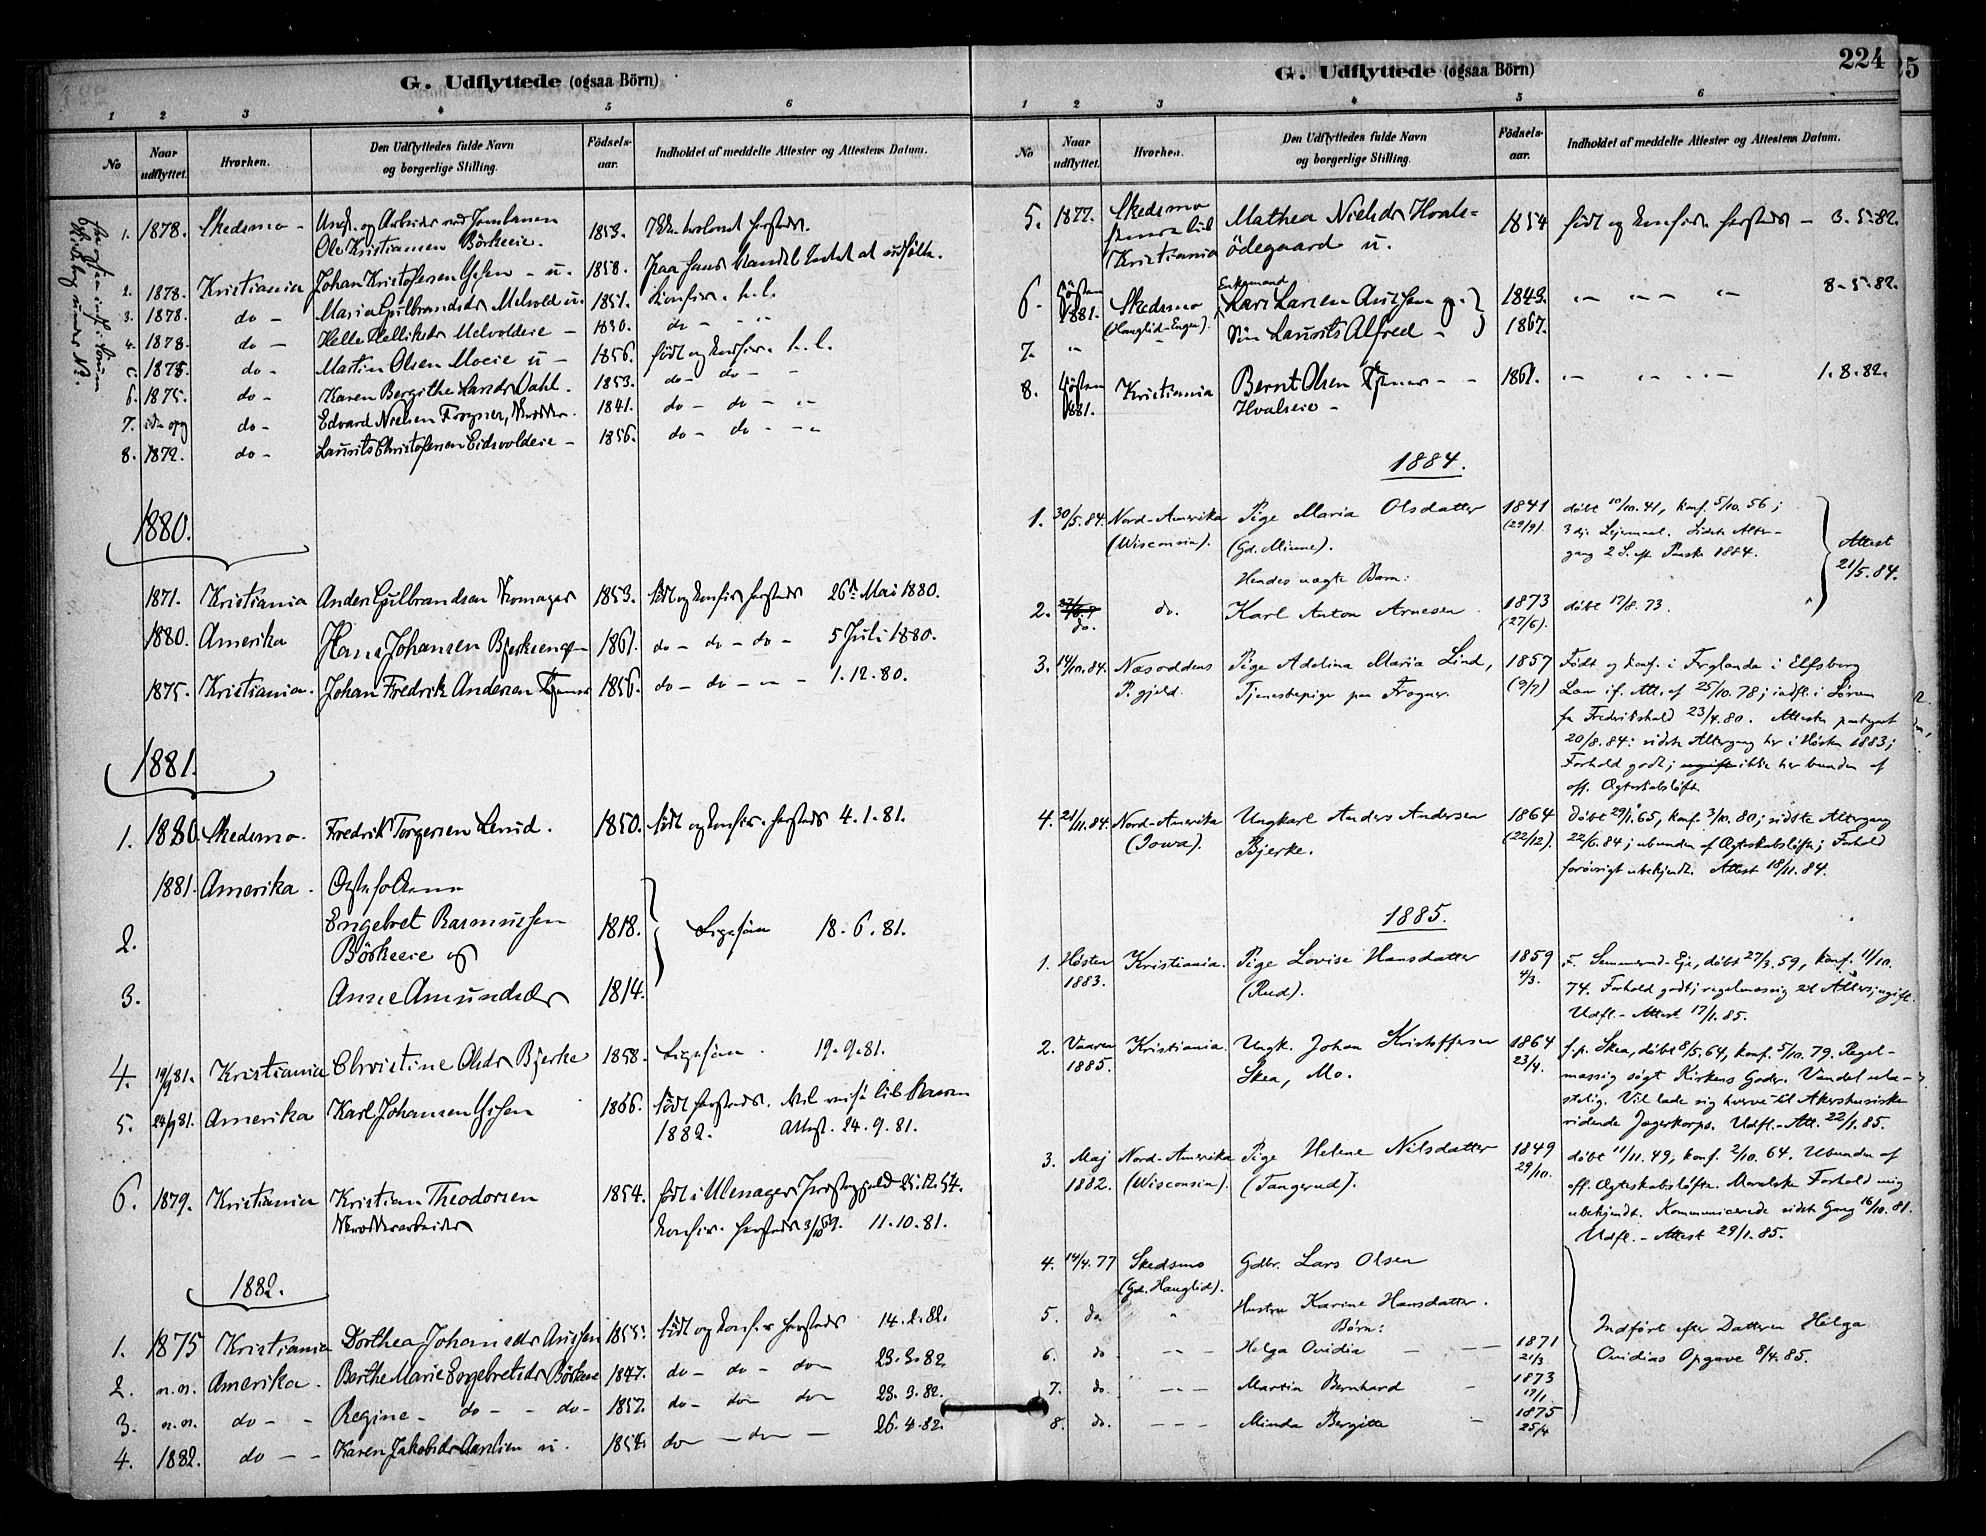 G. Udflyttede (ogsaa Börn)
1 2 3 4 5 6
No
Naar udflyttet.
Hvorhen.
Den Udflyttedes fulde Navn
og borgerlige Stilling.
Födsels-
aar.
Indholdet af meddelte Attester og Attestens Datum.
1. 1878. Skedsmo - og Arbeider ved Jernbanen
Ole Kristiansen Börkeeie. 1853.
2. 1878. Kristiania Johan Kristofersen - u. 1858.
3. 1878. do - Maria Gulbrandsdr Melvold u. 1851. Konfir. h.l.
4. 1878. do - Helle Melvoldeie - 1830. do - - "
5. 1875. do - Martin Olsen Moeie u - 1856. født og konfir. h.l.
6. 1875. do - Karen Bergithe Larsdr Dahl. 1853. do - do - -
7. do - Edvard Nielsen Frogner, 1841. do - do - "
8. 1872. do - Laurits Christofersen Eidsvoldeie - 1856. do - do - - "
1880.
1871. Kristiania Anders Gulbrandsen 1853. født og konfir. hersteds 26de Mai 1880.
1880. Amerika Hans Johansen 1861. do - do - do - 5 Juli 1880.
1875. Kristiania. Johan Fredrik Andersen 1856. do - do - " - 1.12.80.
1881.
1. 1880. Skedsmo. Fredrik Torgersen Lerud. 1850. født og konfir. hersteds 4.1.81.
1881. Amerika. Ægtefolkene
2. Engebret Rasmussen 1818. Ligesaa 18.6.81.
Börkeeie og
3. Anne Amundsdr 1814.
4. 19/9 81. Kristiania Christine Olsdr Bjerke 1858. Ligesaa. 19.9.81.
5. 24/9 81. Amerika Karl Johansen 1866. født hersteds.
1882. Attest. 24.9.81.
6. 1879. Kristiania Kristian Theodorsen 1854. født i Præstegjeld 25.12.54.
konfir. hersteds 11.10.81.
1882.
1. 1875 Kristiania Dorthea Johansdr 1855. født og konfir hersteds 14.2.82.
2. Amerika. Berthe Marie Engebretsdr Börkeeie 1847. do - do - do 23.3.82.
3. do - - Regine - do - - do - 1857. do - do do 23.3.82.
4. 1882. do - - Karen Jakobsdr u. 1854. do - do - 26.4.82.
G. Udflyttede (ogsaa Börn)
224
25
1 2 3 4 5 6
No
Naar udflyttet.
Hvorhen.
Den Udflyttedes fulde Navn
og borgerlige Stilling.
Födsels-
aar.
Indholdet af meddelte Attester og Attestens Datum.
5. 1877. Skedsmo Mathea Nielsdr Hvals- 1854 født og konfir. hersteds - 3.5.82.
senere til
Kristiania ödegaard u.
6. Høsten Enkemand
1881. Skedsmo Lars Larsen og 1843. " " " " 8-5-82.
7. " Søn Laurits Alfred - 1867.
8. Høsten Kristiania Bernt Olsen - - 1861. " " " - 1.8.82.
1881. Hvalseie -
1884.
1. 30/5.84. Nord-Amerika Pige Maria Olsdatter 1841 døbt 10/10.41, konf. 5/10.56;
(Wisconsin). (Gd. Minne). (29/9). 3die Leiermaal. Sidste Alter-
gang 2 S. e. Paaske 1884. Attest
21/5.84.
Hendes uægte Barn:
2. do. do. Karl Anton Arnesen 1873 døbt 17/8.73.
(27/6).
3. 14/10.84. Næsoddens Pige Adelina Maria Lind, 1857 Født og konf. i i Elfsborg
P. gjeld. Tjenestepige paa Frogner. (9/7) Læn if. Att. af 25/10.78; indfl. i Sørum
fra Fredrikshald 23/4.80. Attesten
20/8.84: sidste Altergang her i Høsten 1883;
Forhold godt; ikke her bunden af
off. Ægteskabsløfte.
4. 21/11.84. Nord-Amerika Ungkarl Anders Andersen 1864 Døbt 29/1.65, konf. 3/10.80; sidste Altergang
(Iowa). Bjerke. (22/12). 22/6.84; ubunden af Ægteskabsløfte; Forhold
forøvrigt ubekjendt. Attest 18/11.84.
1885.
1. Høsten Kristiania. Pige Lovise Hansdatter 1859 F. Semmerud-Eje, døbt 27/3.59, konf. 11/10.
1883. (Rud). 4/3. 74. Forhold godt; regelmæssig til Alters; ugift.
Udfl.- Attest 17/1.85.
2. Vaaren Kristiania. Ungk. Johan Kristoffersen 1864 f. p. Skea, døbt 8/5.64, konf. 5/10.79. Regel-
1885. Skea, Mo. 23/4. mæssig søgt Kirkens Goder. Vandel ula-
stelig. Vil lade sig hverve til Akershusiske
ridende Jægerkorps. Udfl.-Att. 22/1.85.
3. Maj Nord-Amerika Pige Helene Nilsdatter 1849 døbt 11/11.49, konf. 2/10.64. Ubunden af
1882. (Wisconsin). (Tangerud). 29/10. off. Ægteskabsløfte. Moralske Forhold mig
ubekjendt. Kommunicerede sidste Gang 16/10.81.
Udfl. - Attest 29/1.85.
4. 14/4.77 Skedsmo Gdbr. Lars Olsen
(Gd. Hauglid).
5. do " Hustru Karine Hansdatter.
Børn:
6. do - " - Helga Ovidia - - 1871 Indført efter Datteren Helga
21/3 Ovidias Opgave 8/4.85.
7. do. - " - Martin Bernhard - 1873
17/1
8. do. - - - Minda Bergitte - 1875
25/4